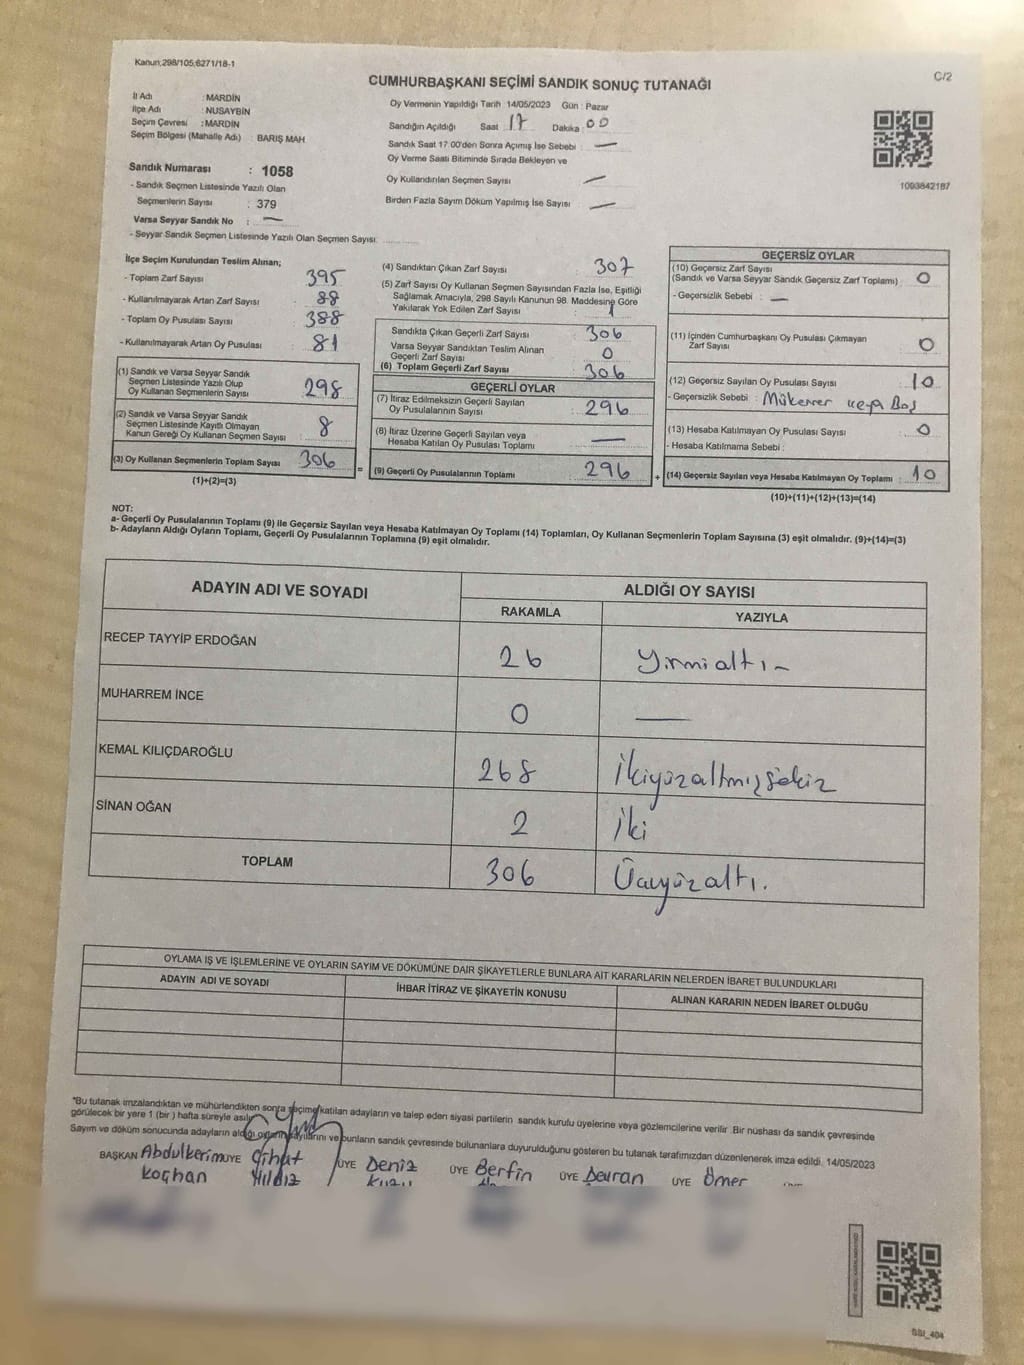 Kanun;298/105;6271/18-1
C/2
CUMHURBAŞKANI SEÇİMİ SANDIK SONUÇ TUTANAĞI
İl Adı : MARDİN
İlçe Adı : NUSAYBİN
Seçim Çevresi : MARDİN
Seçim Bölgesi (Mahalle Adı) : BARIŞ MAH
Sandık Numarası : 1058
- Sandık Seçmen Listesinde Yazılı Olan
Seçmenlerin Sayısı : 379
Varsa Seyyar Sandık No : —
- Seyyar Sandık Seçmen Listesinde Yazılı Olan Seçmen Sayısı:
Oy Vermenin Yapıldığı Tarih 14/05/2023 Gün : Pazar
Sandığın Açıldığı Saat 17 Dakika : 00
Sandık Saat 17:00'den Sonra Açımış İse Sebebi : —
Oy Verme Saati Bitiminde Sırada Bekleyen ve
Oy Kullandırılan Seçmen Sayısı —
Birden Fazla Sayım Döküm Yapılmış İse Sayısı —
1093842187
İlçe Seçim Kurulundan Teslim Alınan;
- Toplam Zarf Sayısı : 395
- Kullanılmayarak Artan Zarf Sayısı : 88
- Toplam Oy Pusulası Sayısı : 388
- Kullanılmayarak Artan Oy Pusulası : 81
(1) Sandık ve Varsa Seyyar Sandık
Seçmen Listesinde Yazılı Olup
Oy Kullanan Seçmenlerin Sayısı : 298
(2) Sandık ve Varsa Seyyar Sandık
Seçmen Listesinde Kayıtlı Olmayan
Kanun Gereği Oy Kullanan Seçmen Sayısı : 8
(3) Oy Kullanan Seçmenlerin Toplam Sayısı : 306
(1)+(2)=(3)
(4) Sandıktan Çıkan Zarf Sayısı : 307
(5) Zarf Sayısı Oy Kullanan Seçmen Sayısından Fazla İse, Eşitliği
Sağlamak Amacıyla, 298 Sayılı Kanunun 98. Maddesine Göre
Yakılarak Yok Edilen Zarf Sayısı : 1
Sandıkta Çıkan Geçerli Zarf Sayısı : 306
Varsa Seyyar Sandıktan Teslim Alınan
Geçerli Zarf Sayısı : 0
(6) Toplam Geçerli Zarf Sayısı : 306
GEÇERLİ OYLAR
(7) İtiraz Edilmeksizin Geçerli Sayılan
Oy Pusulalarının Sayısı : 296
(8) İtiraz Üzerine Geçerli Sayılan veya
Hesaba Katılan Oy Pusulası Toplamı : —
= (9) Geçerli Oy Pusulalarının Toplamı : 296
GEÇERSİZ OYLAR
(10) Geçersiz Zarf Sayısı
(Sandık ve Varsa Seyyar Sandık Geçersiz Zarf Toplamı) : 0
- Geçersizlik Sebebi : —
(11) İçinden Cumhurbaşkanı Oy Pusulası Çıkmayan
Zarf Sayısı : 0
(12) Geçersiz Sayılan Oy Pusulası Sayısı : 10
- Geçersizlik Sebebi : Mükerrer veya Boş
(13) Hesaba Katılmayan Oy Pusulası Sayısı : 0
- Hesaba Katılmama Sebebi :
+ (14) Geçersiz Sayılan veya Hesaba Katılmayan Oy Toplamı : 10
(10)+(11)+(12)+(13)=(14)
NOT:
a- Geçerli Oy Pusulalarının Toplamı (9) ile Geçersiz Sayılan veya Hesaba Katılmayan Oy Toplamı (14) Toplamları, Oy Kullanan Seçmenlerin Toplam Sayısına (3) eşit olmalıdır. (9)+(14)=(3)
b- Adayların Aldığı Oyların Toplamı, Geçerli Oy Pusulalarının Toplamına (9) eşit olmalıdır.
ADAYIN ADI VE SOYADI ALDIĞI OY SAYISI
RAKAMLA YAZIYLA
RECEP TAYYİP ERDOĞAN 26 Yirmialtı
MUHARREM İNCE 0 —
KEMAL KILIÇDAROĞLU 268 İkiyüzaltmışsekiz
SİNAN OĞAN 2 İki
TOPLAM 306 Üçyüzaltı.
OYLAMA İŞ VE İŞLEMLERİNE VE OYLARIN SAYIM VE DÖKÜMÜNE DAİR ŞİKAYETLERLE BUNLARA AİT KARARLARIN NELERDEN İBARET BULUNDUKLARI
ADAYIN ADI VE SOYADI İHBAR İTİRAZ VE ŞİKAYETİN KONUSU ALINAN KARARIN NEDEN İBARET OLDUĞU
*Bu tutanak imzalandıktan ve mühürlendikten sonra seçime katılan adayların ve talep eden siyasi partilerin sandık kurulu üyelerine veya gözlemcilerine verilir. Bir nüshası da sandık çevresinde
görülecek bir yere 1 (bir) hafta süreyle asılır
Sayım ve döküm sonucunda adayların aldığı oyların sayılarını ve bunların sandık çevresinde bulunanlara duyurulduğunu gösteren bu tutanak tarafımızdan düzenlenerek imza edildi. 14/05/2023
BAŞKAN Abdulkerim ÜYE Cihat ÜYE Deniz ÜYE Berfin ÜYE Devran ÜYE Ömer
Koçhan Yıldız
SSI_404